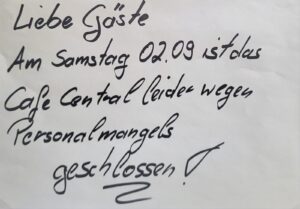 Liebe Gäste
Am Samstag 02.09 ist das
Cafe Central leider wegen
Personalmangels
geschlossen!